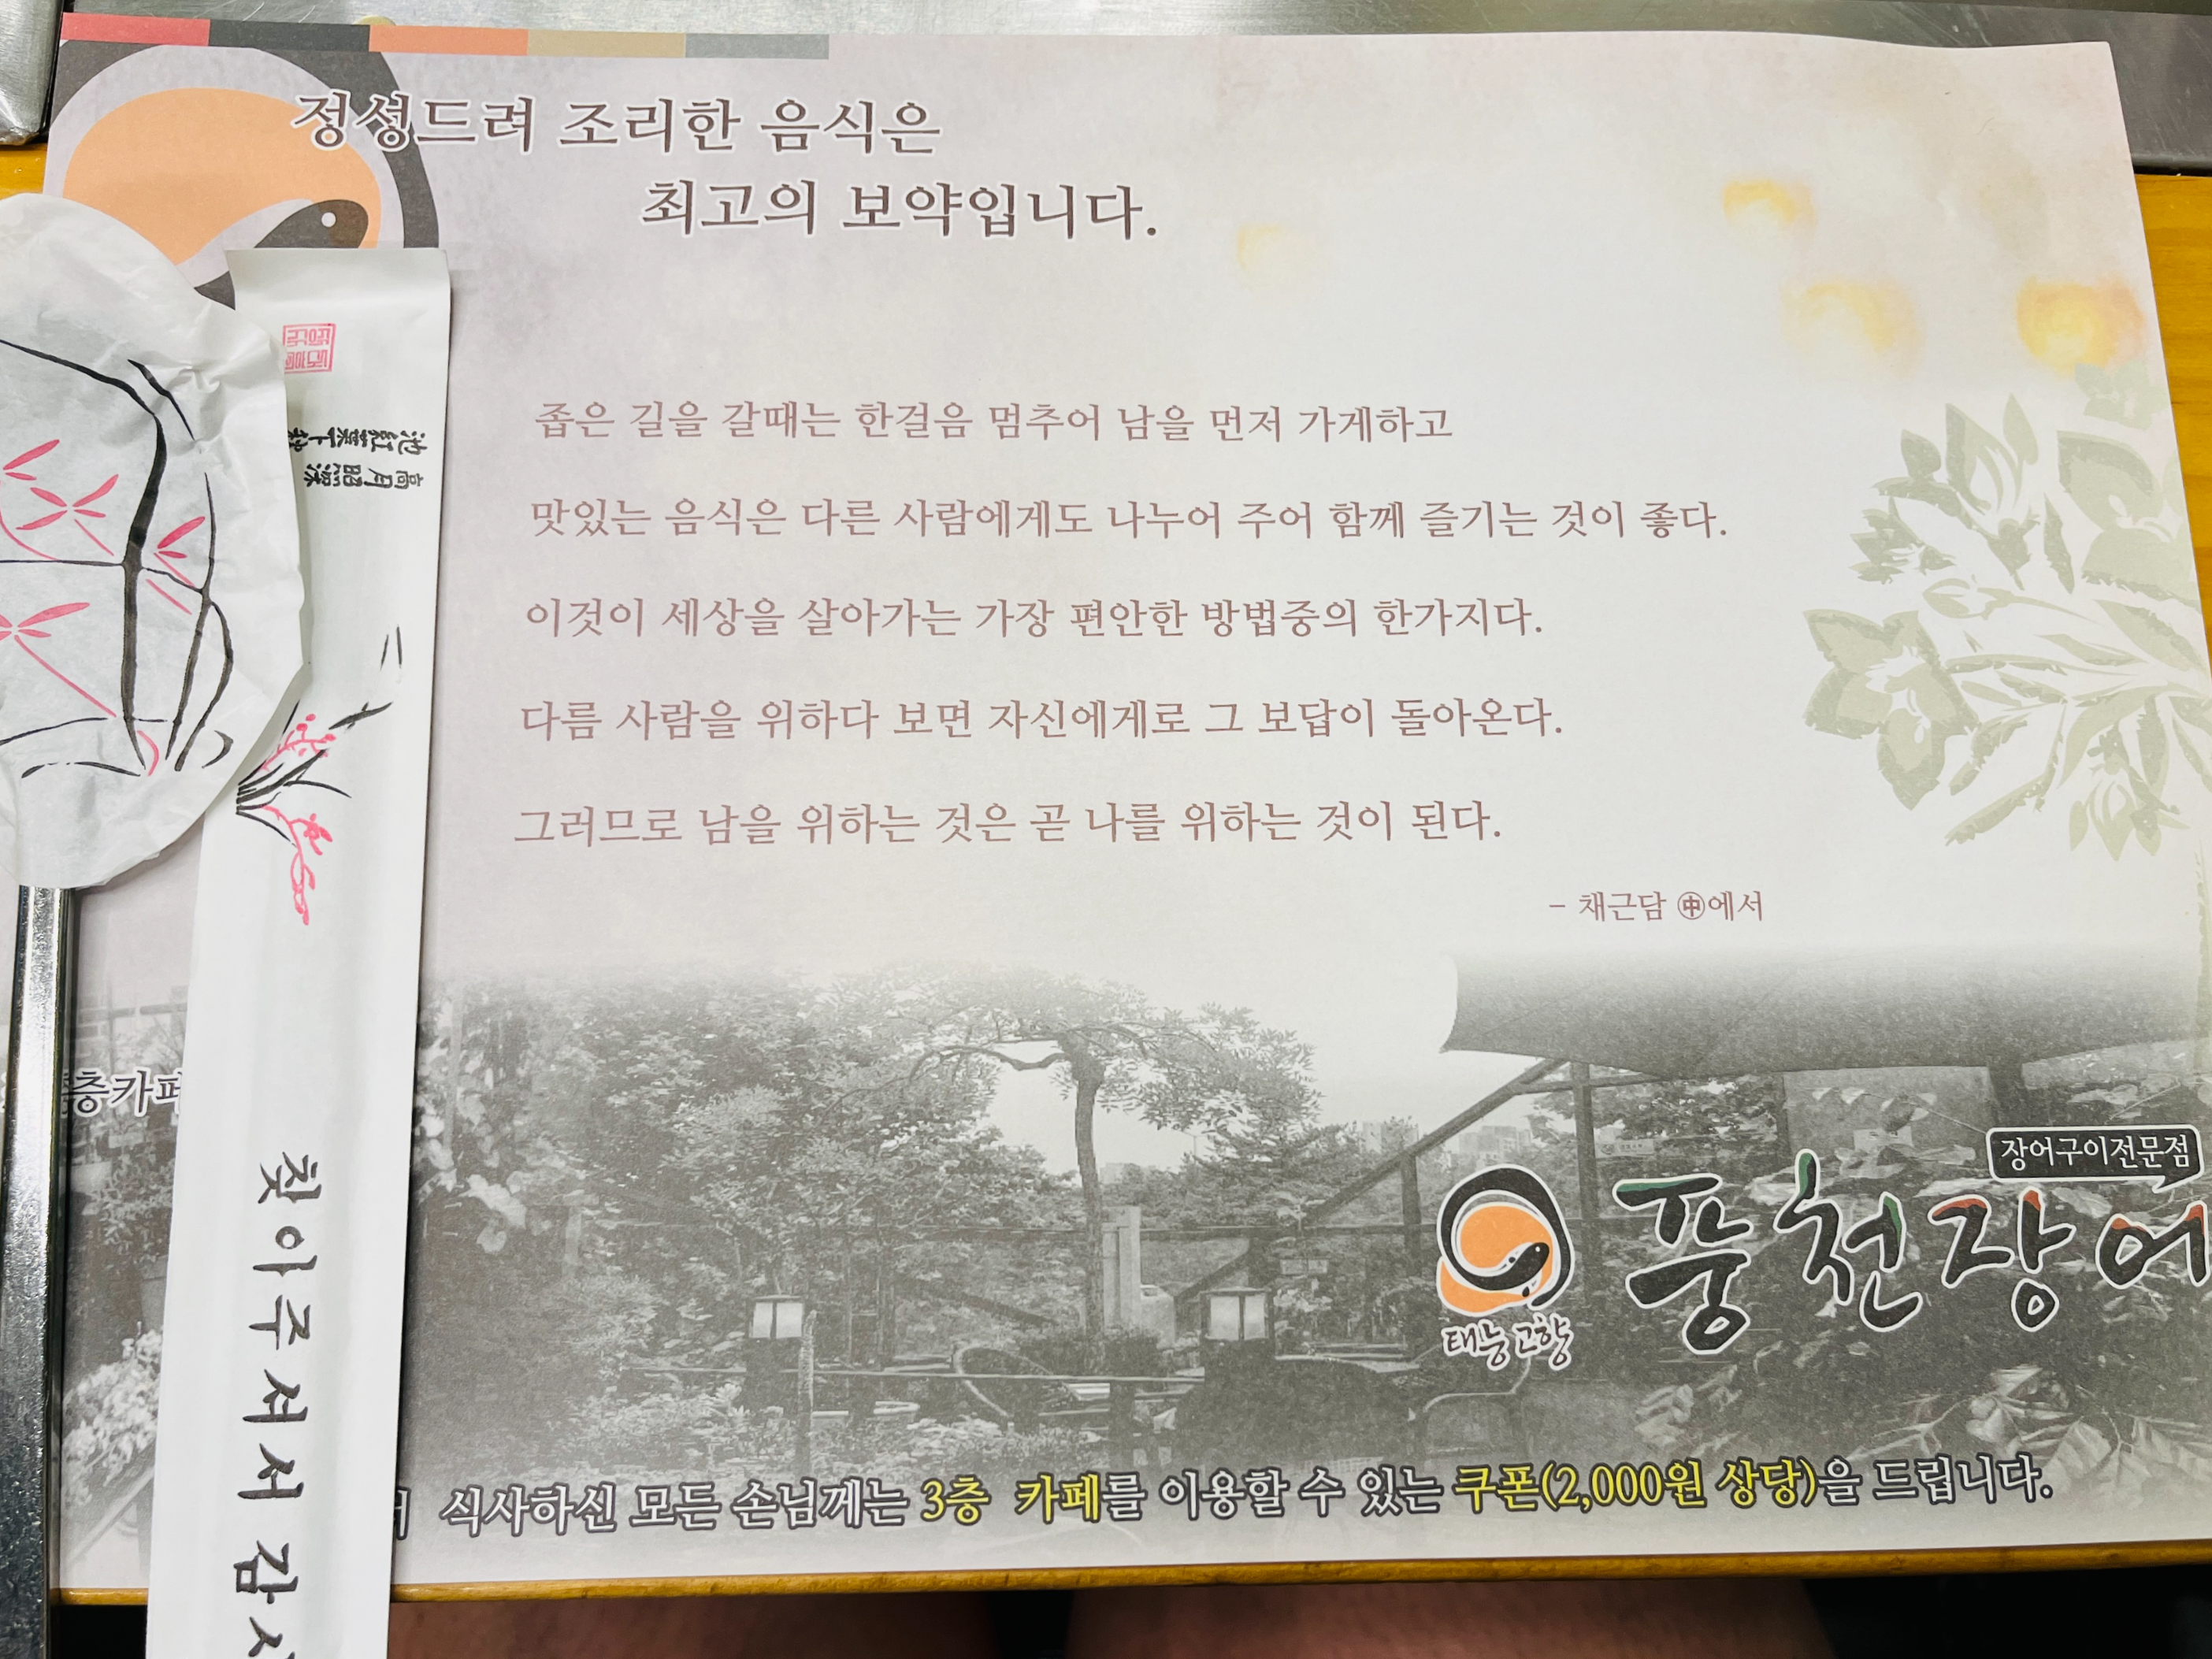 정성드려 조리한 음식은
최고의 보약입니다.
좁은 길을 갈때는 한걸음 멈추어 남을 먼저 가게하고
맛있는 음식은 다른 사람에게도 나누어 주어 함께 즐기는 것이 좋다.
이것이 세상을 살아가는 가장 편안한 방법중의 한가지다.
다름 사람을 위하다 보면 자신에게로 그 보답이 돌아온다.
그러므로 남을 위하는 것은 곧 나를 위하는 것이 된다.
- 채근담 ㊥에서
층카페
장어구이전문점
풍천장어
태능고향
식사하신 모든 손님께는 3층 카페를 이용할 수 있는 쿠폰(2,000원 상당)을 드립니다.
찾아주셔서 감사